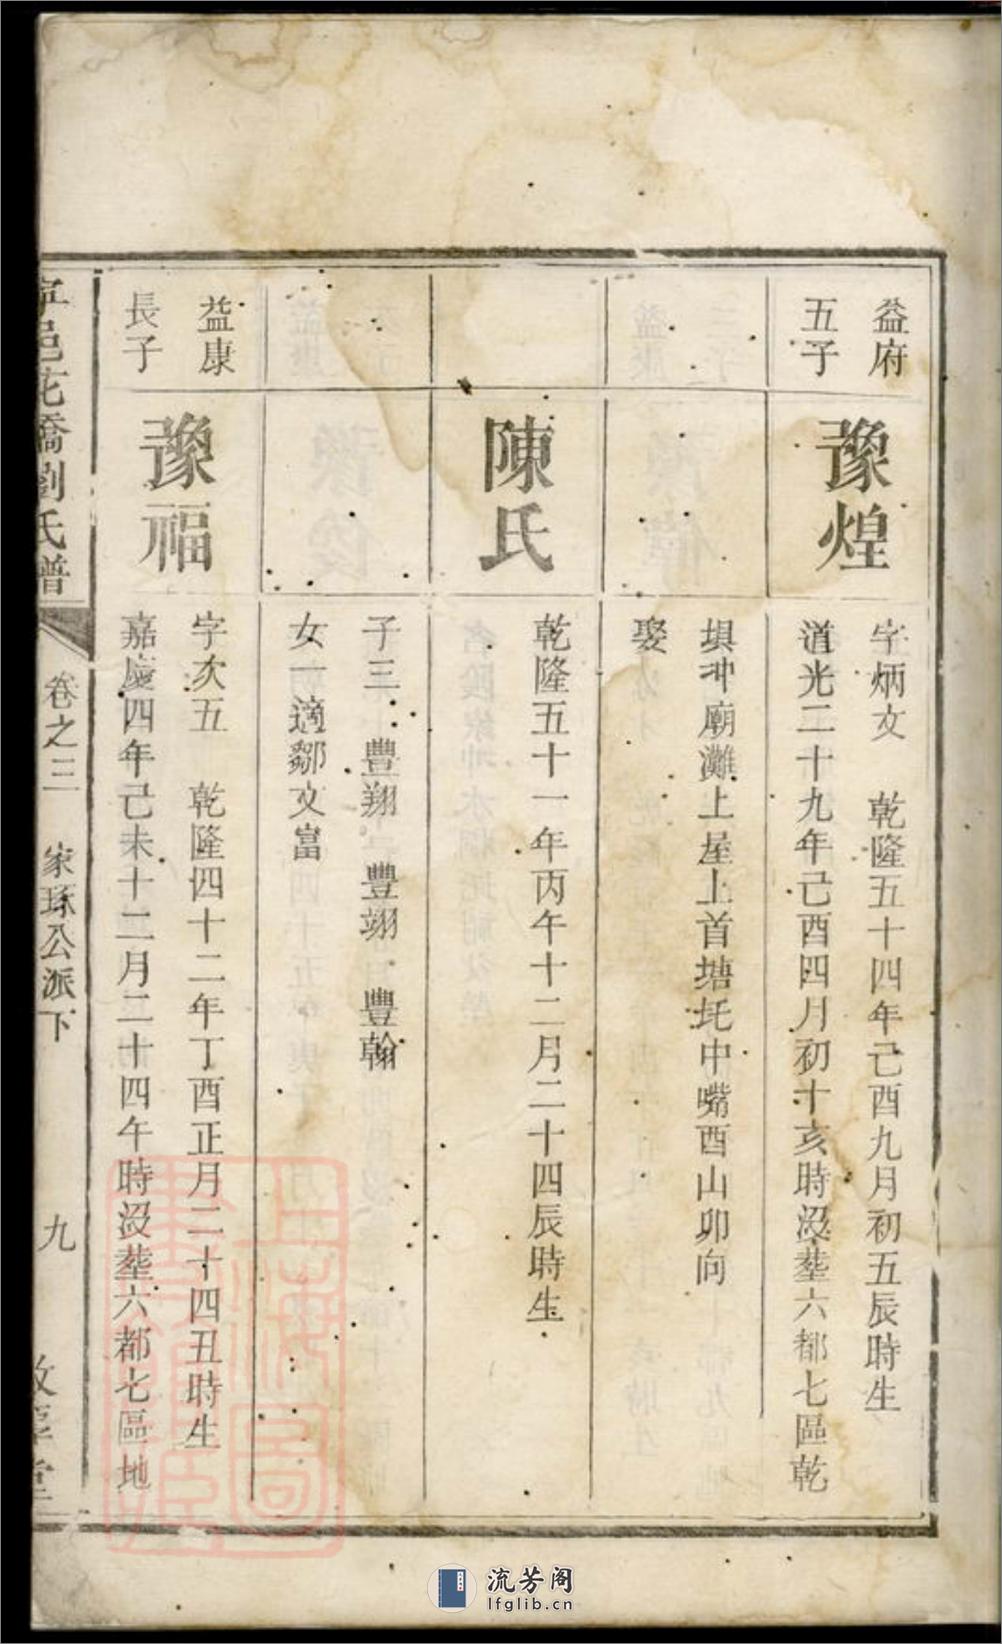 益府
五子
豫煌
字炳文 乾隆五十四年己酉九月初五辰時生
道光二十九年己酉四月初十亥時沒塟六都七區乾
埧冲廟灘上屋上首塘圫中嘴酉山卯向
娶
陳氏
乾隆五十一年丙午十二月二十四辰時生
子三 豐翔 豐翊 豐翰
女一 適鄒文富
益康
長子
豫福
字次五 乾隆四十二年丁酉正月二十四丑時生
嘉慶四年己未十二月二十四午時沒塟六都七區地
寧邑花橋劉氏譜
卷之三 家琢公派下
九
敦厚堂
上海圖書館藏
流芳阁
lfglib.cn